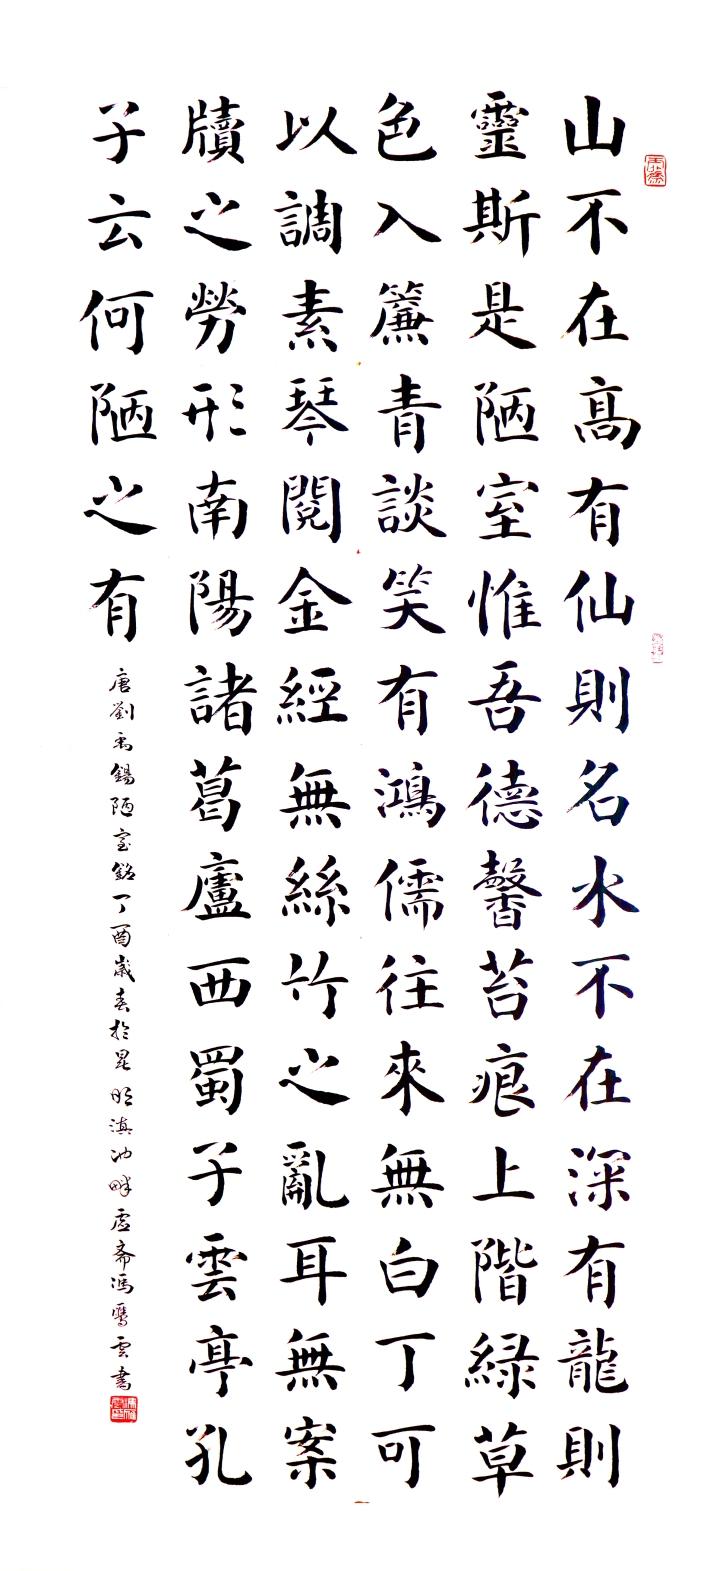 山不在髙有仙則名水不在深有龍則
靈斯是陋室惟吾德馨苔痕上階緑草
色入簾青談笑有鴻儒往來無白丁可
以調素琴閱金經無絲竹之亂耳無案
牘之勞形南陽諸葛廬西蜀子雲亭孔
子云何陋之有
唐劉禹錫陋室銘丁酉歲春於昆明滇池畔虛斋馮雲書